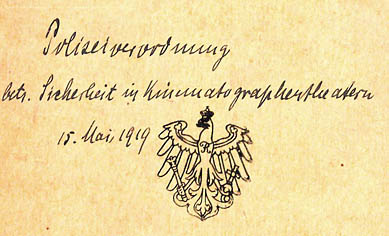 Polizeiverordnung
betr. Sicherheit in Kinematographentheatern
15. Mai 1919